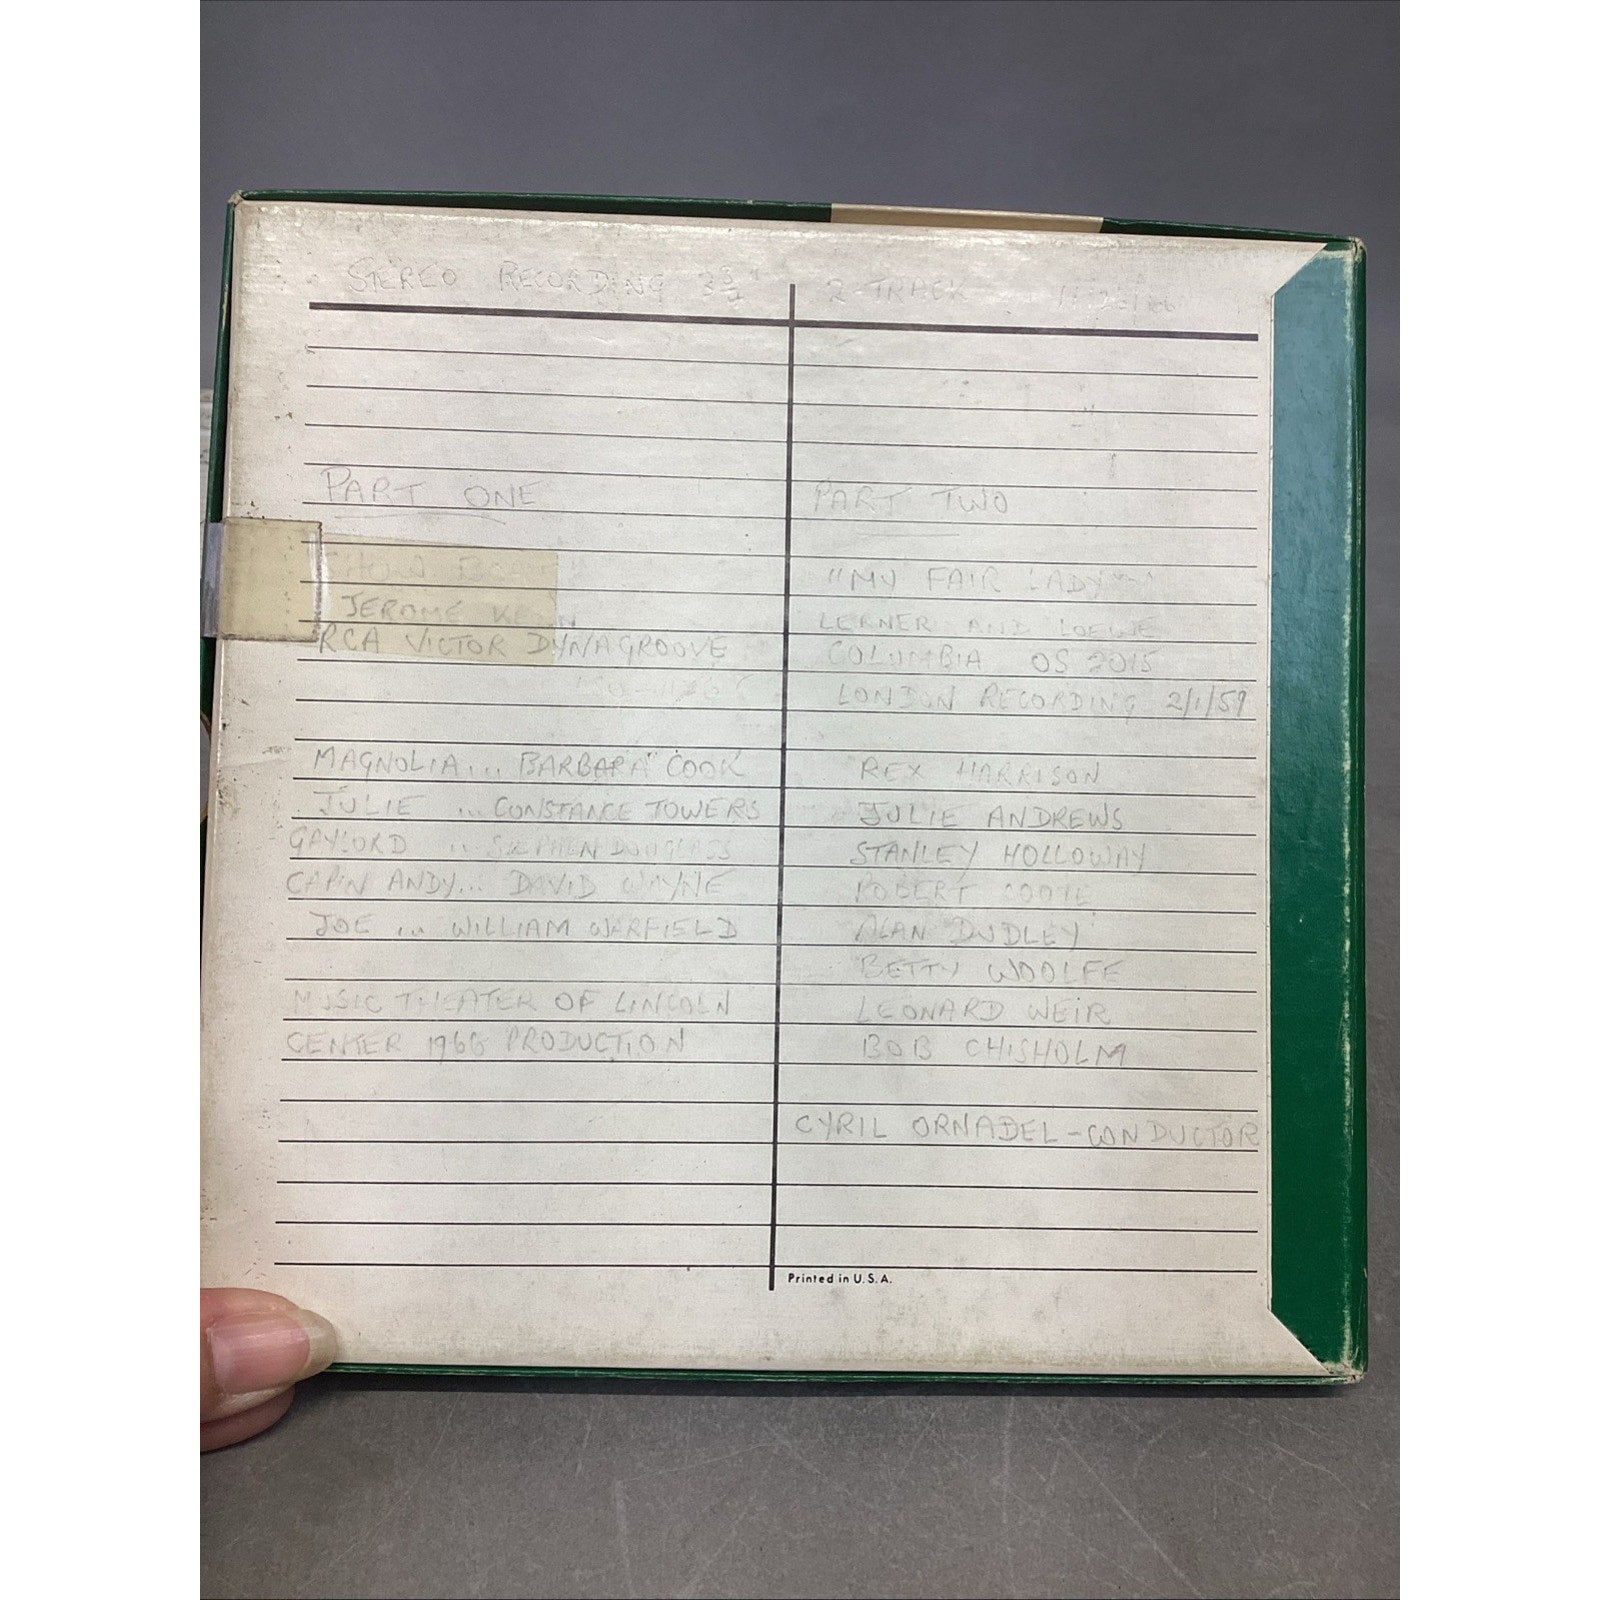 STEREO RECORDING 3¾" 2-TRACK
PART ONE
JEROME KERN
RCA VICTOR DYNAGROOVE
MAGNOLIA... BARBARA COOK
JULIE ... CONSTANCE TOWERS
GAYLORD .. STEPHEN DOUGLASS
CAP'N ANDY... DAVID WAYNE
JOE ... WILLIAM WARFIELD
MUSIC THEATER OF LINCOLN
CENTER 1966 PRODUCTION
PART TWO
"MY FAIR LADY"
LERNER AND LOEWE
COLUMBIA OS 2015
LONDON RECORDING 2/1/59
REX HARRISON
JULIE ANDREWS
STANLEY HOLLOWAY
ROBERT COOTE
ALAN DUDLEY
BETTY WOOLFE
LEONARD WEIR
BOB CHISHOLM
CYRIL ORNADEL - CONDUCTOR
Printed in U.S.A.